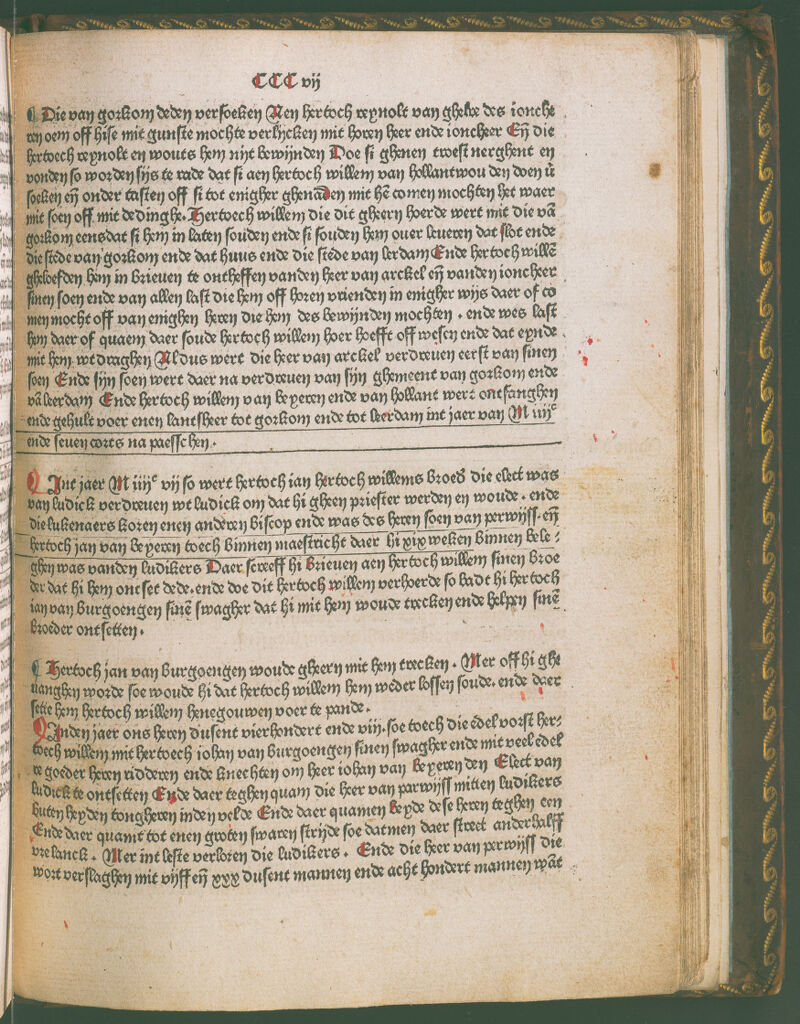 CCC vij
¶ Die van gorkom deden versoeken Aen hertoch reynolt van ghelre des ionche
ren oem off hise mit gunste mochte verlijcken mit horen heer ende ioncheer Eñ die
hertoech reynolt en wouts hem nijt bewijnden Doe si ghenen troest nerghent en
vonden so worden sijs te rade dat si aen hertoch willem van hollant wouden doen v̄
soeken eñ onder tasten off si tot enigher ghenaden mit hē comen mochten het waer
mit soen off mit dedinghe. Hertoech willem die dit gheern hoerde wert mit die vā
gorkom eens dat si hem in laten souden ende si souden hem ouer leueren dat slot ende
die stede van gorkom ende dat huus ende die stede van lerdam Ende hertoch willē
gheloefden hem in brieuen te ontheffen vanden heer van arckel eñ vanden ioncheer
sinen soen ende van allen last die hem off horen vrienden in enigher wijs daer of co
men mocht off van enighen heren die hem des bewijnden mochten . ende wes last
hem daer of quaem daer soude hertoch willem hoer hoefft off wesen ende dat eynde
mit hem wtdraghen Aldus wert die heer van arckel verdreuen eerst van sinen
soen Ende sijn soen wert daer na verdreuen van sijn ghemeent van gorkom ende
vā leerdam Ende hertoch willem van beyeren ende van hollant wert ontfanghen
ende gehult voer enen lantsheer tot gorkom ende tot leerdam int jaer van M iiijᶜ
ende seuen corts na paesschen.
Int jaer M iiijᶜ vij so wert hertoch ian hertoch willems broed̕ die elect was
van ludick verdreuen wt ludick om dat hi gheen priester werden en woude . ende
die lukenaers koren enen anderen biscop ende was des heren soen van perwijss . eñ
hertoch jan van beyeren toech binnen maestricht daer hi xix weken binnen bele-
ghen was vanden ludikers Daer screeff hi brieuen aen hertoch willem sinen broe
der dat hi hem ontset dede. ende doe dit hertoch willem verhoerde so badt hi hertoch
ian van burgoengen sinē swagher dat hi mit hem woude trecken ende helpen sinē
broeder ontsetten.
¶ Hertoch jan van burgoengen woude gheern mit hem trecken . Mer off hi ghe
uanghen worde soe woude hi dat hertoch willem hem weder lossen soude. ende daer
sette hem hertoch willem henegouwen voer te pande.
Inden jaer ons heren dusent vierhondert ende viij. soe toech die edel vorst her-
toech willem mit hertoech iohan van burgoengen sinen swagher ende mit veel edel
re goeder heren ridderen ende knechten om heer iohan van beyeren den Elect van
ludick te ontsetten Ende daer teghen quam die heer van parwijss mitten ludikers
buten heyden tongheren inden velde Ende daer quamen beyde dese heren teghen een
Ende daer quamt tot enen groten swaren strijde soe datmen daer street anderhalff
vre lanck . Mer int leste verloren die ludikers . Ende die heer van perwijss die
wort verslaghen mit vijff eñ xxx dusent mannen ende acht hondert mannen wāt